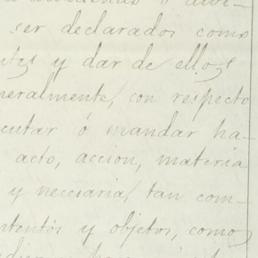 ser declarados como
y dar de ellos
neralmente, con respecto
cutar ó mandar ha-
acto, accion, materia
y necesaria, tan com-
ntentos y objetos, como